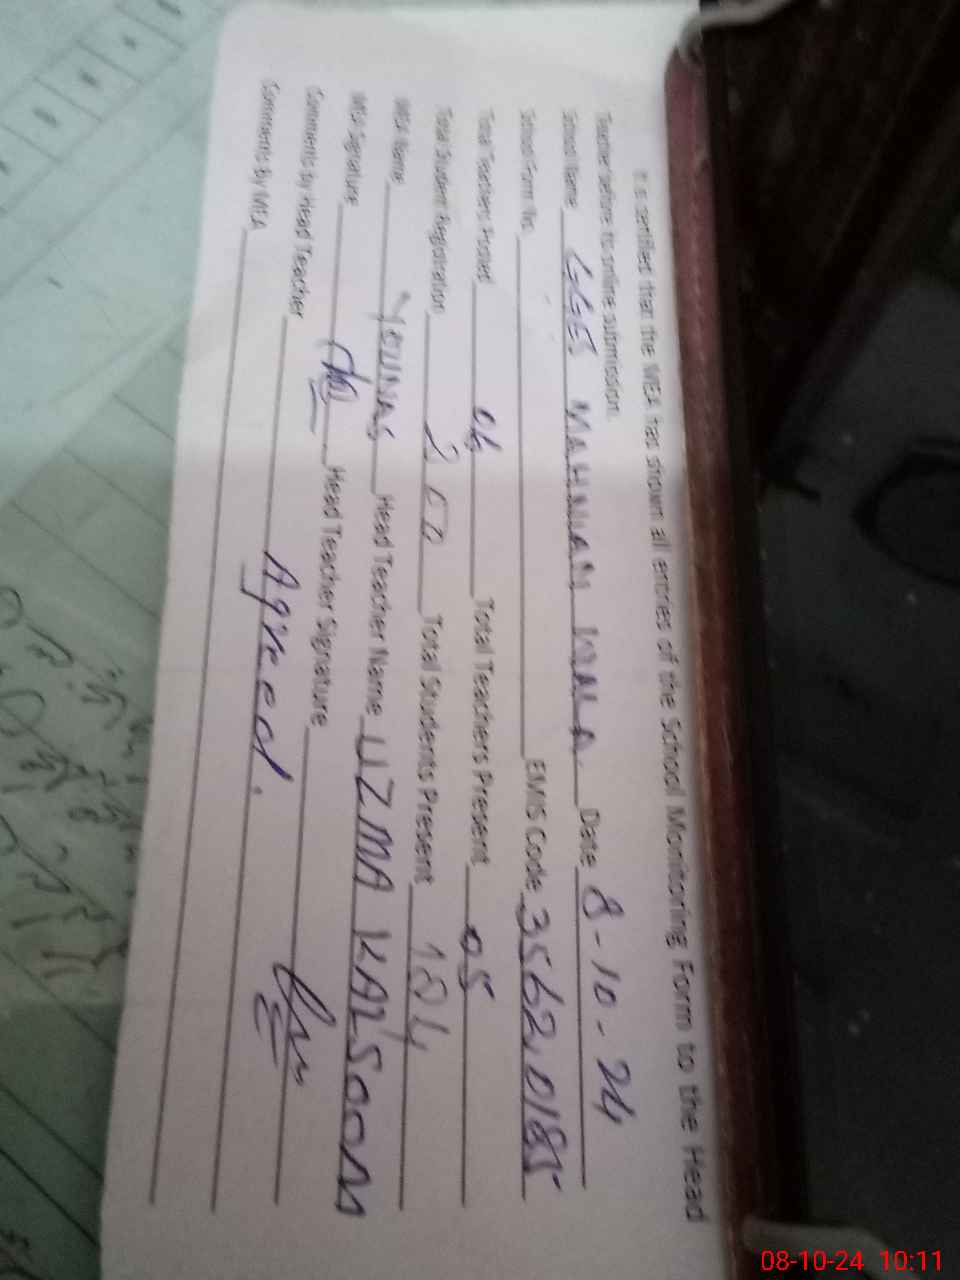 It is certified that the MEA has shown all entries of the School Monitoring Form to the Head
Teacher before its online submission.
School Name GGES MAHNIAN WALA Date 8-10-24
School Form No. EMIS Code 35620185
Total Teachers Posted 06 Total Teachers Present 05
Total Student Registration 200 Total Students Present
MEA Name YOUNAS Head Teacher Name UZMA KALSOOM
MEA Signature Head Teacher Signature
Comments by Head Teacher Agreed.
Comments by MEA
08-10-24 10:11